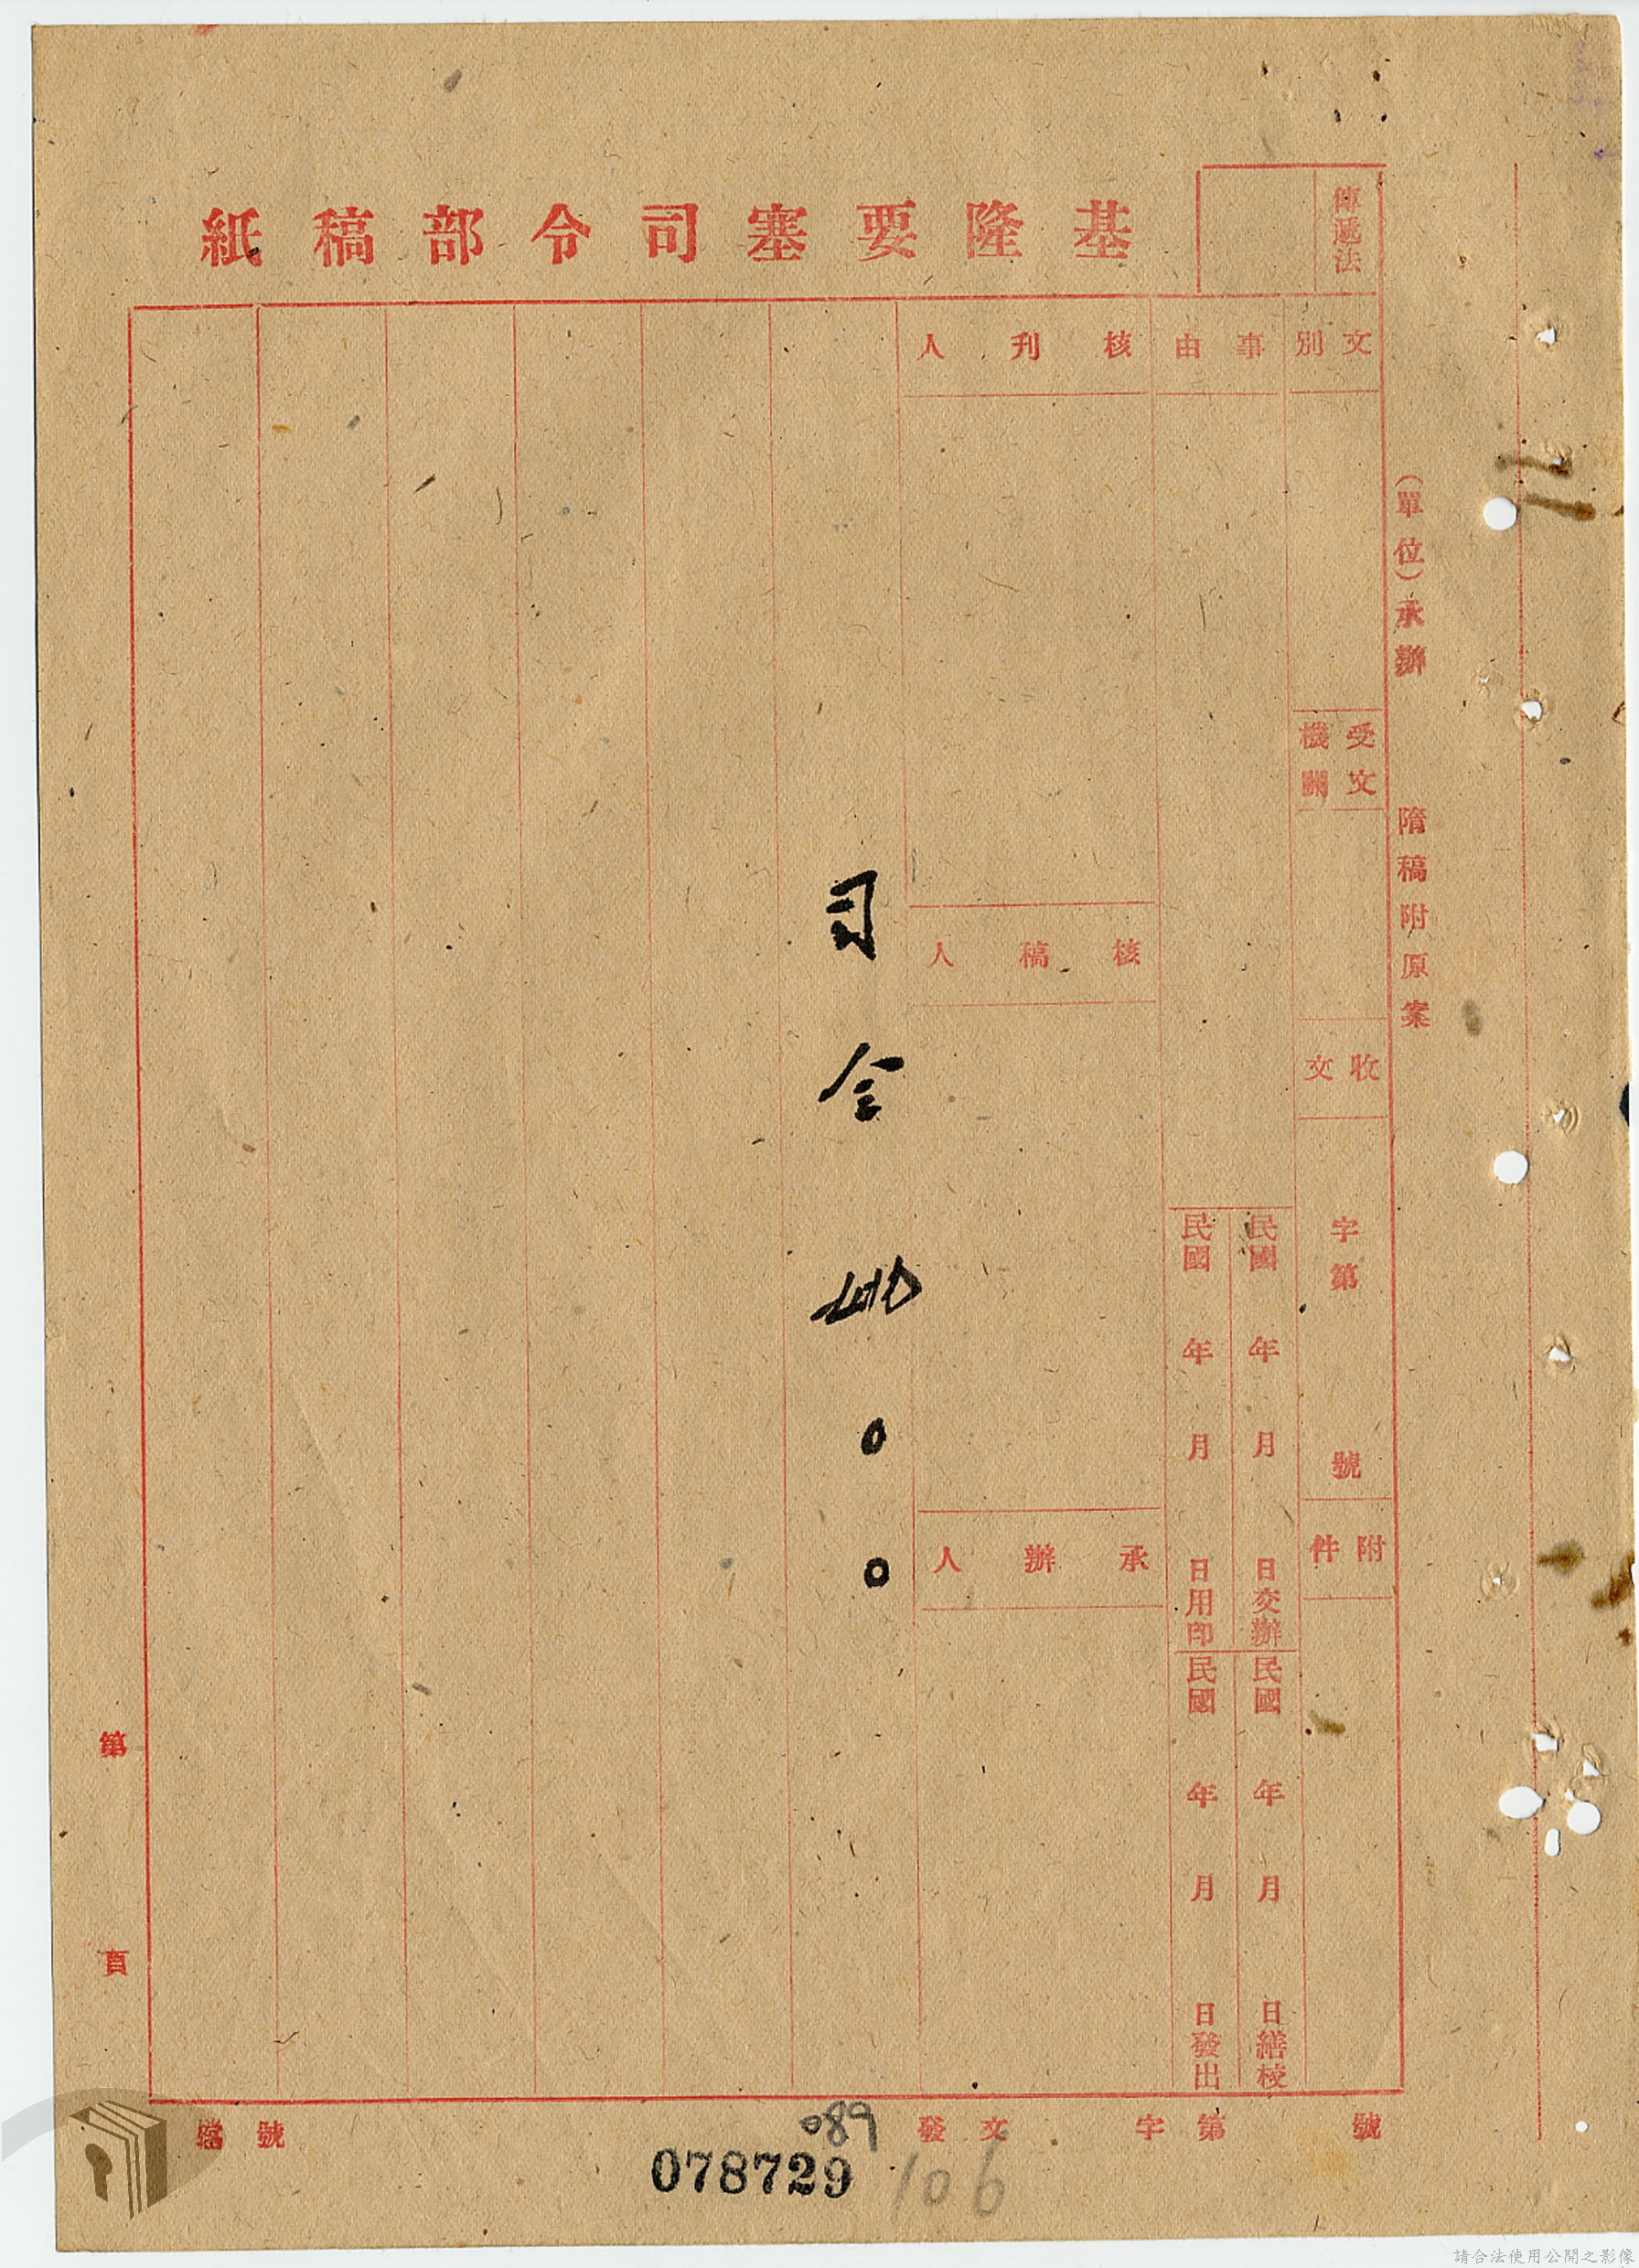 基隆要塞司令部稿紙
傳遞法
(單位)承辦 隋稿附原案
文別
受文機關
收文
字第 號
附件
事由
民國 年 月 日交辦
民國 年 月 日繕校
民國 年 月 日用印
民國 年 月 日發出
核刋人
核稿人
承辦人
司令 〇〇
第 頁
檔號
發文 字第 號
089
078729
106
請合法使用公開之影像